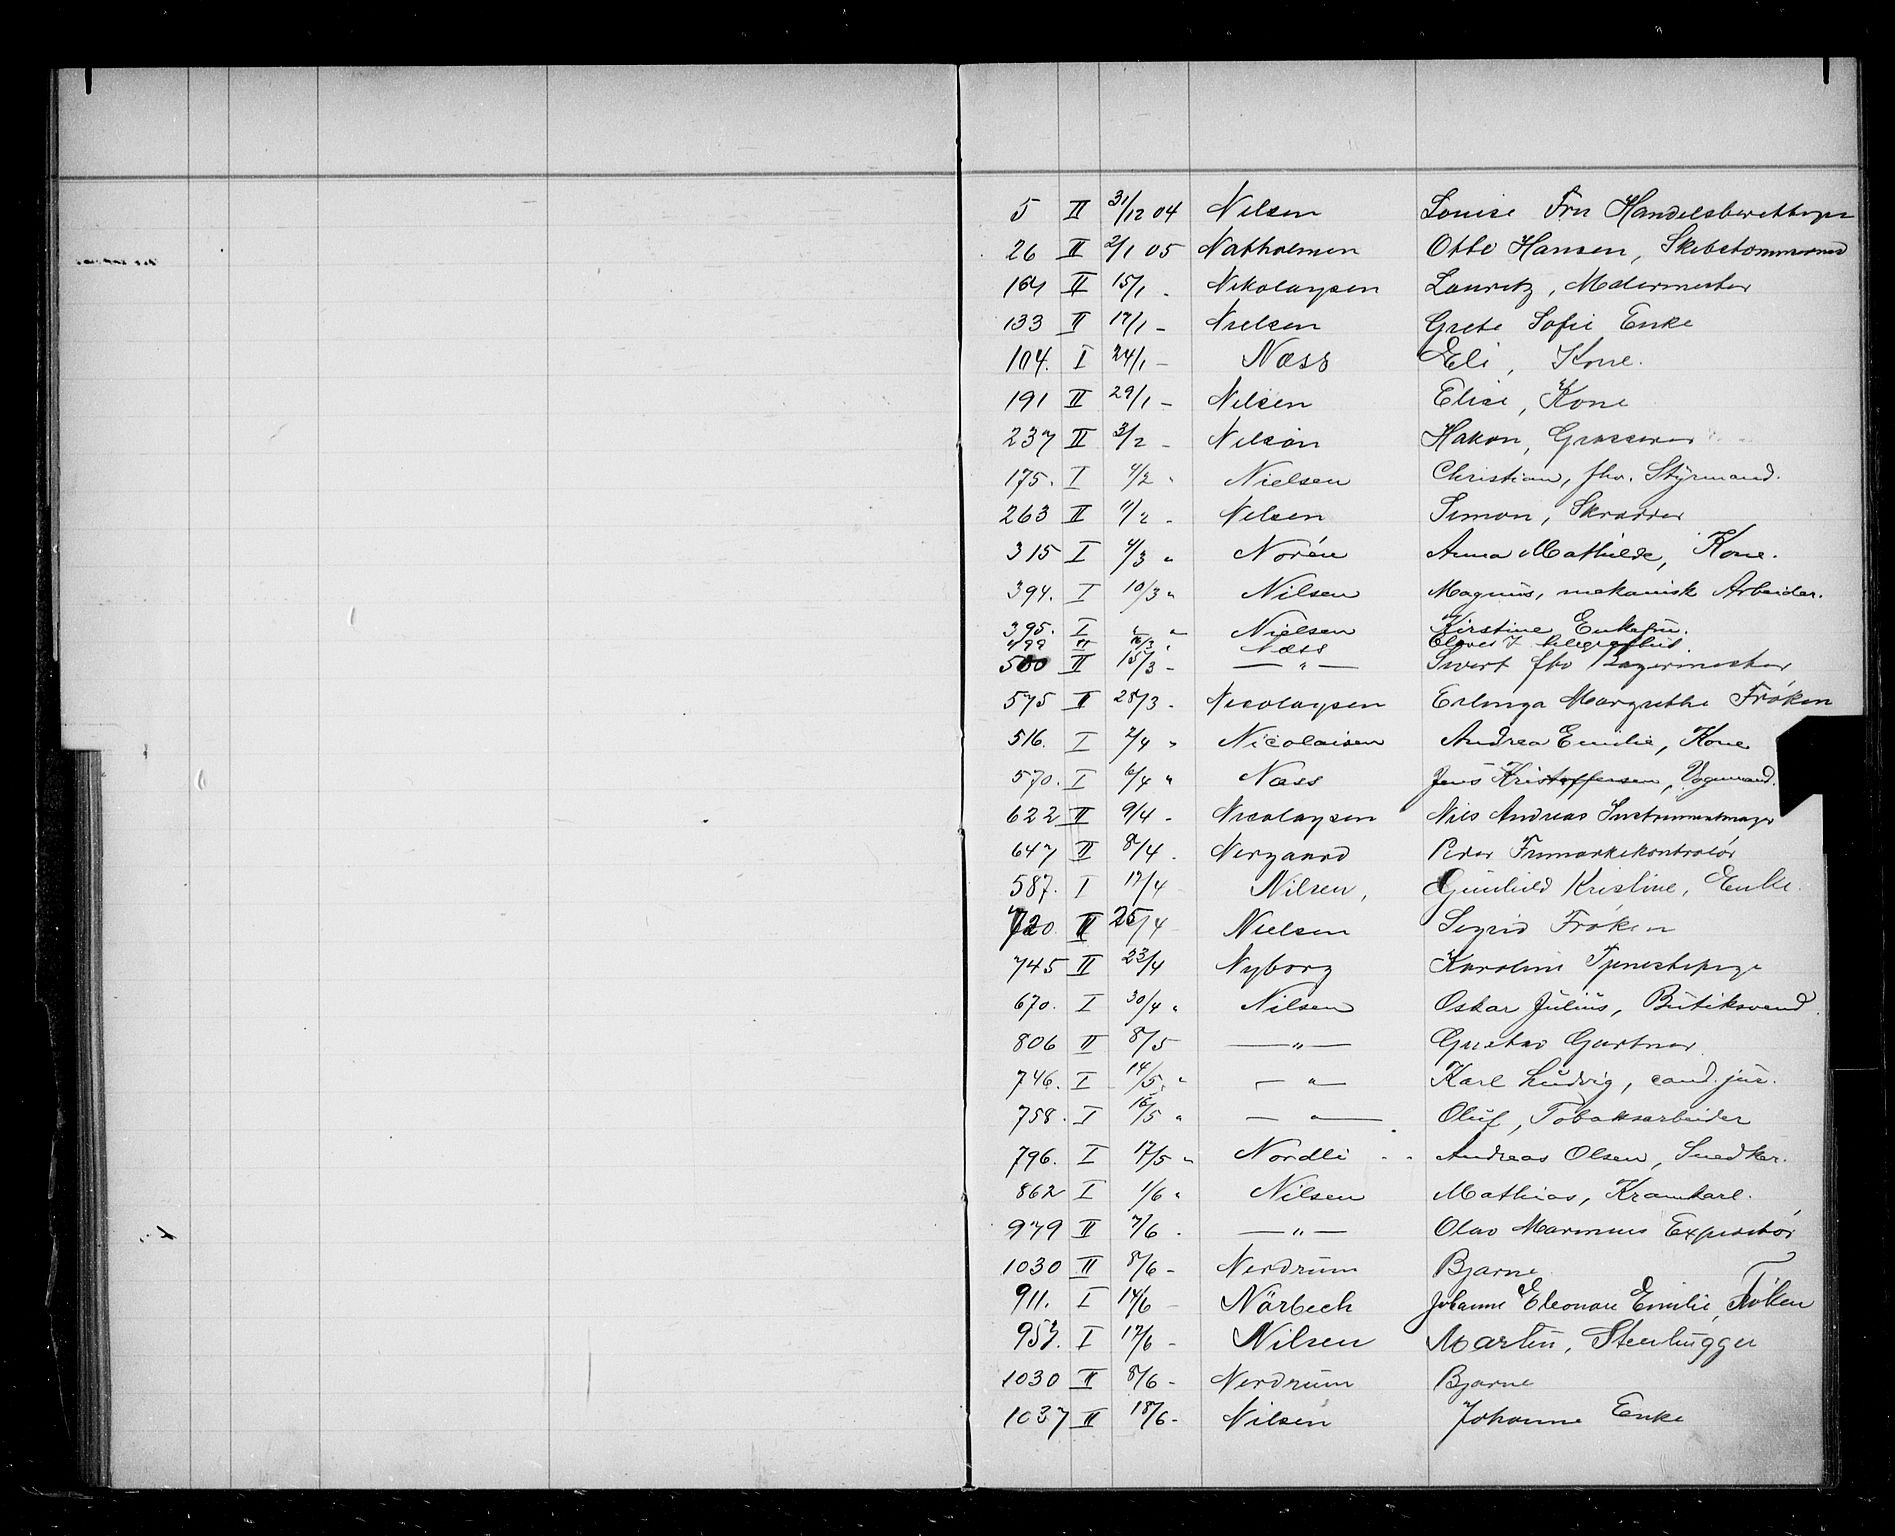 5 II 31/12 04 Nilsen Louise Fru Handelsberettiget
26 II 2/1 05 Natholmen Otto Hansen, Skibstømmermd
164 II 15/1 - Nikolaysen Lauritz, Malermester
133 II 17/1 - Nielsen Grete Sofie Enke
104. I 24/1 - Næss Eli, Kone.
191 II 29/1 - Nilsen Elise, Kone
237 II 3/2 - Nilson Hakon, Grosserer
175. I 4/2 " Nielsen Christian, fhv. Styrmand.
263 II 11/2 - Nilsen Simon, Skrædder
315 I 4/3 " Norén Anna Mathilde, Kone.
394. I 10/3 " Nilsen Magnus, mekanisk Arbeider.
395. I " " Nielsen Kirstine Enkefru.
499 II 16/3 " Næss telegrafist.
500 II 15/3 - — " — Sivert fhv Bagermester
575 II 28/3 - Nicolaysen Erlinga Margrethe Frøken
516. I 2/4 " Nicolaisen Andrea Emilie, Kone
570. I 6/4 " Næss Jens Kristoffersen, Vognmand.
622 II 9/4 - Nicolaysen Nils Andreas Instrumentmager
647 II 8/4 - Nergaard Peder Frimærkekontrolør
587. I 17/4 - Nilsen, Gunhild Kristine, Enke.
720 II 25/4 - Nielsen Sigrid Frøken
745 II 23/4 Nyborg Karoline Tjenestepige
670. I 30/4 " Nilsen Oskar Julius, Butiksvend.
806 II 8/5 — " — Gustav Gartner
746. I 14/5 " — " — Karl Ludvig, cand. jur.
758. I 16/5 " — " — Oluf, Tobaksarbeider
796. I 17/5 " Nordli Andreas Olsen, Snedker.
862 I 1/6 " Nilsen Mathias, Kramkarl.
979 II 7/6 - — " — Olav Marinius Expeditør
1030 II 8/6 - Nerdrum Bjarne
911. I 14/6 - Nörbech Johanne Eleonore Emilie, Frøken
957. I 17/6 - Nilsen Martin, Stenhugger
1030 II 8/6 - Nerdrum Bjarne
1037 II 18/6 - Nilsen Johanne Enke